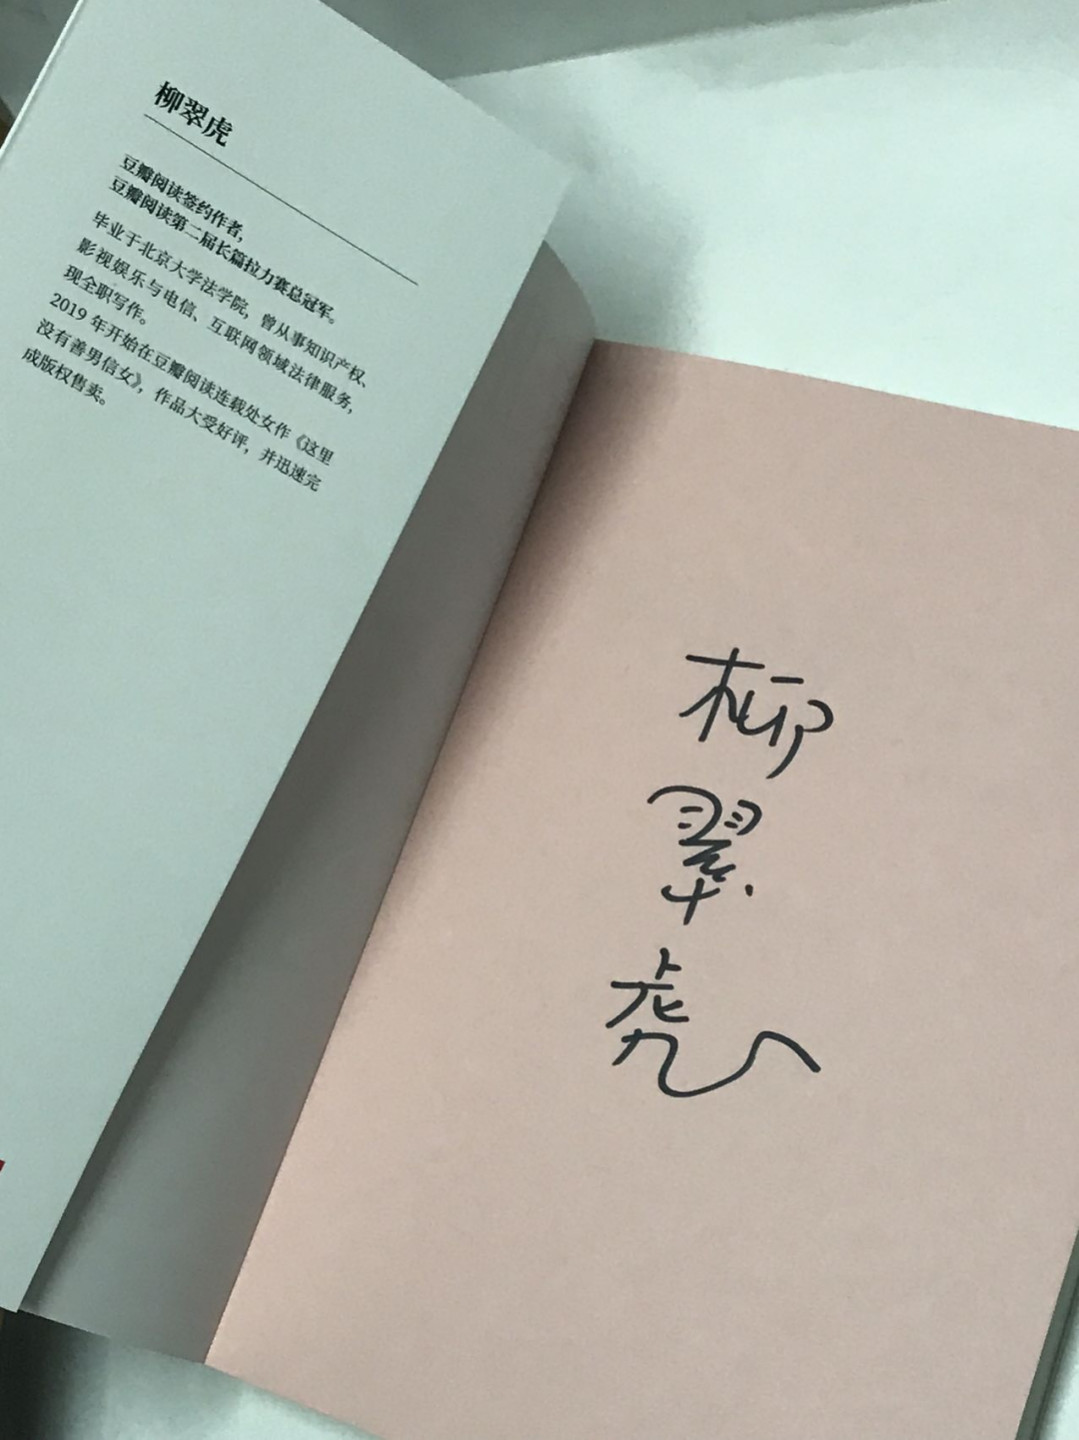 柳翠虎
豆瓣阅读签约作者，
豆瓣阅读第二届长篇拉力赛总冠军。
毕业于北京大学法学院，曾从事知识产权、
影视娱乐与电信、互联网领域法律服务，
现全职写作。
2019 年开始在豆瓣阅读连载处女作《这里
没有善男信女》，作品大受好评，并迅速完
成版权售卖。
柳
翠
虎